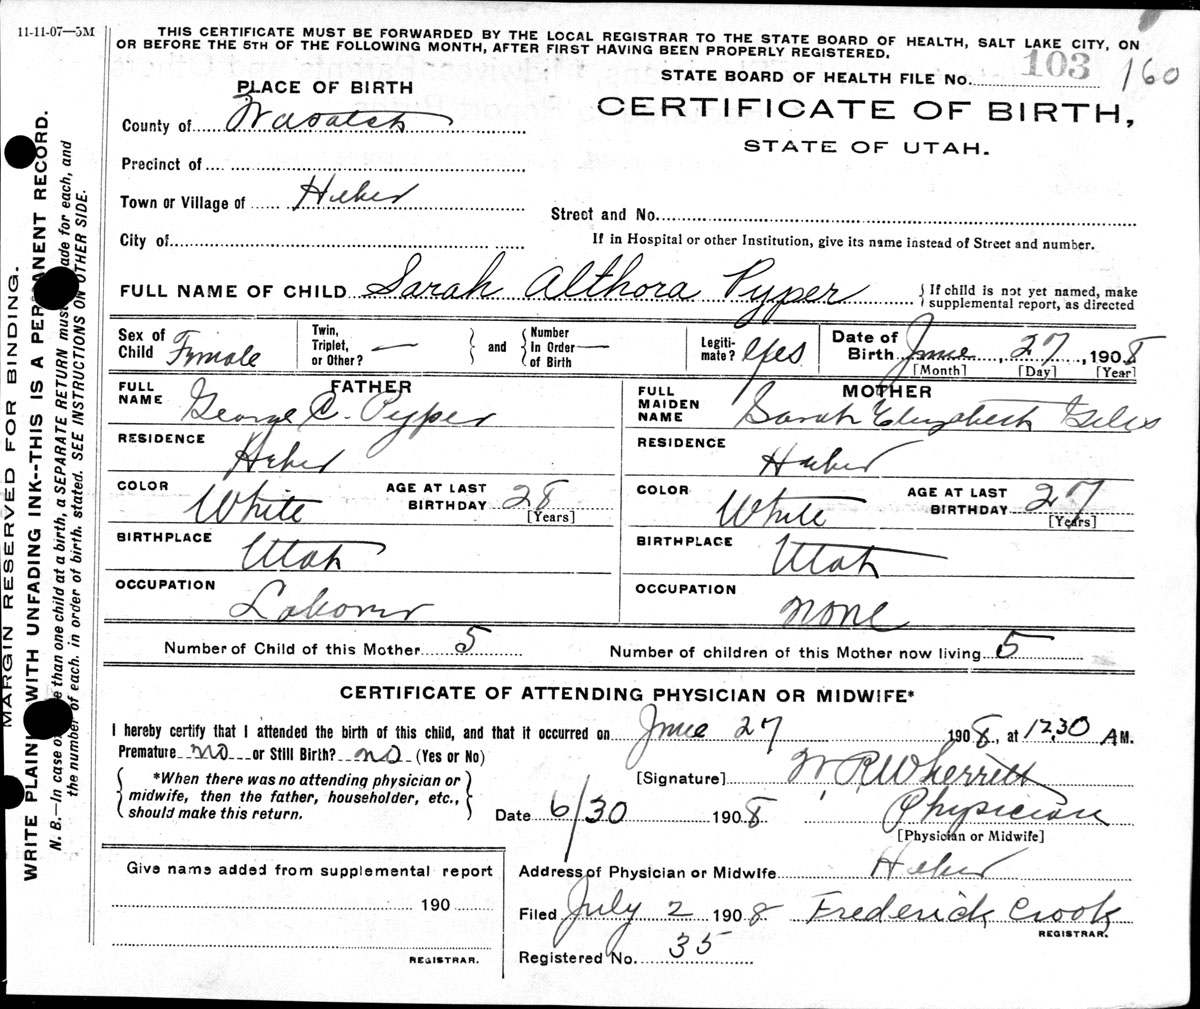 11-11-07—5M
THIS CERTIFICATE MUST BE FORWARDED BY THE LOCAL REGISTRAR TO THE STATE BOARD OF HEALTH, SALT LAKE CITY, ON
OR BEFORE THE 5TH OF THE FOLLOWING MONTH, AFTER FIRST HAVING BEEN PROPERLY REGISTERED.
STATE BOARD OF HEALTH FILE No. 103 160
PLACE OF BIRTH
CERTIFICATE OF BIRTH,
County of Wasatch
STATE OF UTAH.
Precinct of
Town or Village of Heber
Street and No.
City of
If in Hospital or other Institution, give its name instead of Street and number.
FULL NAME OF CHILD Sarah Althora Pyper { If child is not yet named, make supplemental report, as directed
Sex of Child Female Twin, Triplet, or Other? — } and { Number In Order of Birth — Legitimate? Yes Date of Birth June, 27, 1908
[Month] [Day] [Year]
FATHER MOTHER
FULL NAME George C. Pyper FULL MAIDEN NAME Sarah Elizabeth Giles
RESIDENCE Heber RESIDENCE Heber
COLOR White AGE AT LAST BIRTHDAY 28 [Years] COLOR White AGE AT LAST BIRTHDAY 27 [Years]
BIRTHPLACE Utah BIRTHPLACE Utah
OCCUPATION Laborer OCCUPATION none
Number of Child of this Mother 5 Number of children of this Mother now living 5
CERTIFICATE OF ATTENDING PHYSICIAN OR MIDWIFE*
I hereby certify that I attended the birth of this child, and that it occurred on June 27 1908, at 12,30 AM.
Premature no or Still Birth? no (Yes or No)
[Signature] W R Wherritt
{ *When there was no attending physician or midwife, then the father, householder, etc., should make this return. }
Date 6/30 1908 Physician
[Physician or Midwife]
Give name added from supplemental report
Address of Physician or Midwife Heber
190
Filed July 2 1908 Frederick Crook
REGISTRAR.
REGISTRAR.
Registered No. 35
MARGIN RESERVED FOR BINDING.
WRITE PLAINLY WITH UNFADING INK--THIS IS A PERMANENT RECORD.
N. B.—In case of more than one child at a birth, a SEPARATE RETURN must be made for each, and
the number of each, in order of birth, stated. SEE INSTRUCTIONS ON OTHER SIDE.